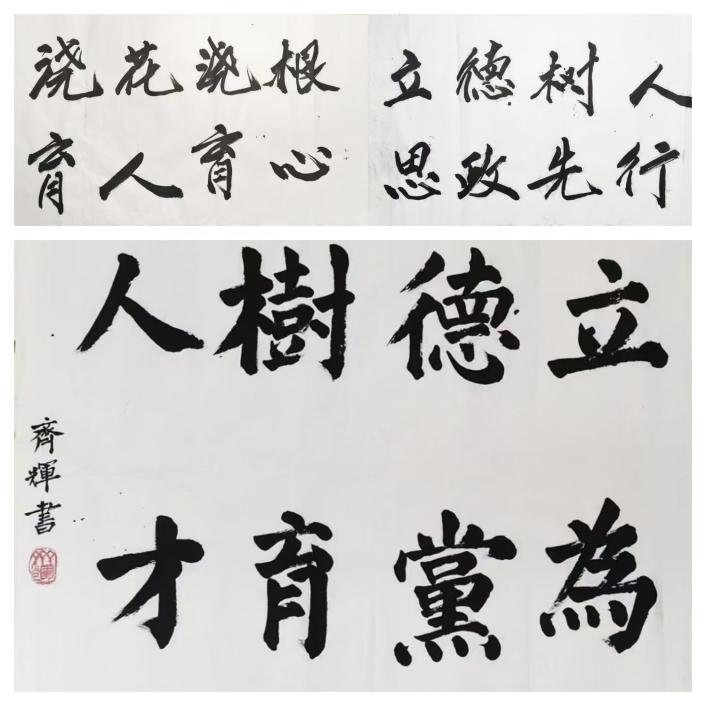 浇花浇根
育人育心
立德树人
思政先行
立德樹人
為黨育才
齊輝書